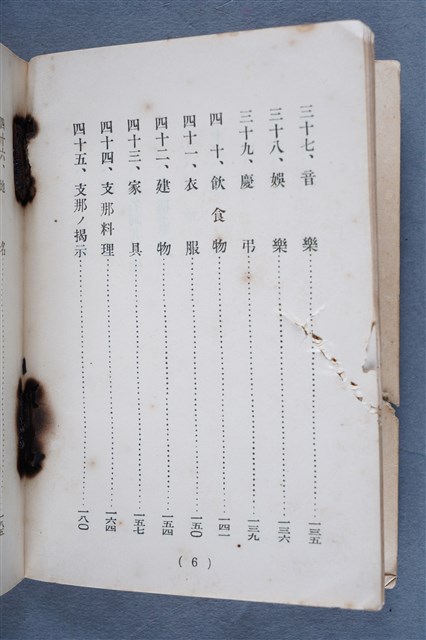 三十七、音樂 一三五
三十八、娯樂 一三六
三十九、慶弔 一三九
四十、飲食物 一四一
四十一、衣服 一五〇
四十二、建物 一五四
四十三、家具 一五七
四十四、支那料理 一六四
四十五、支那ノ揭示 一八〇
(6)